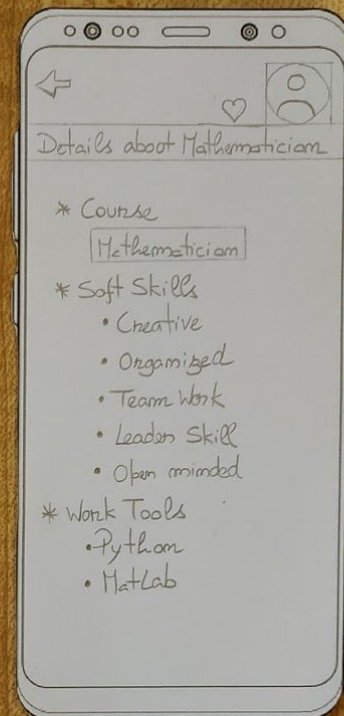 Details about Mathematician
* Course
Mathematician
* Soft Skills
• Creative
• Organized
• Team Work
• Leader Skill
• Open minded
* Work Tools
• Python
• MatLab